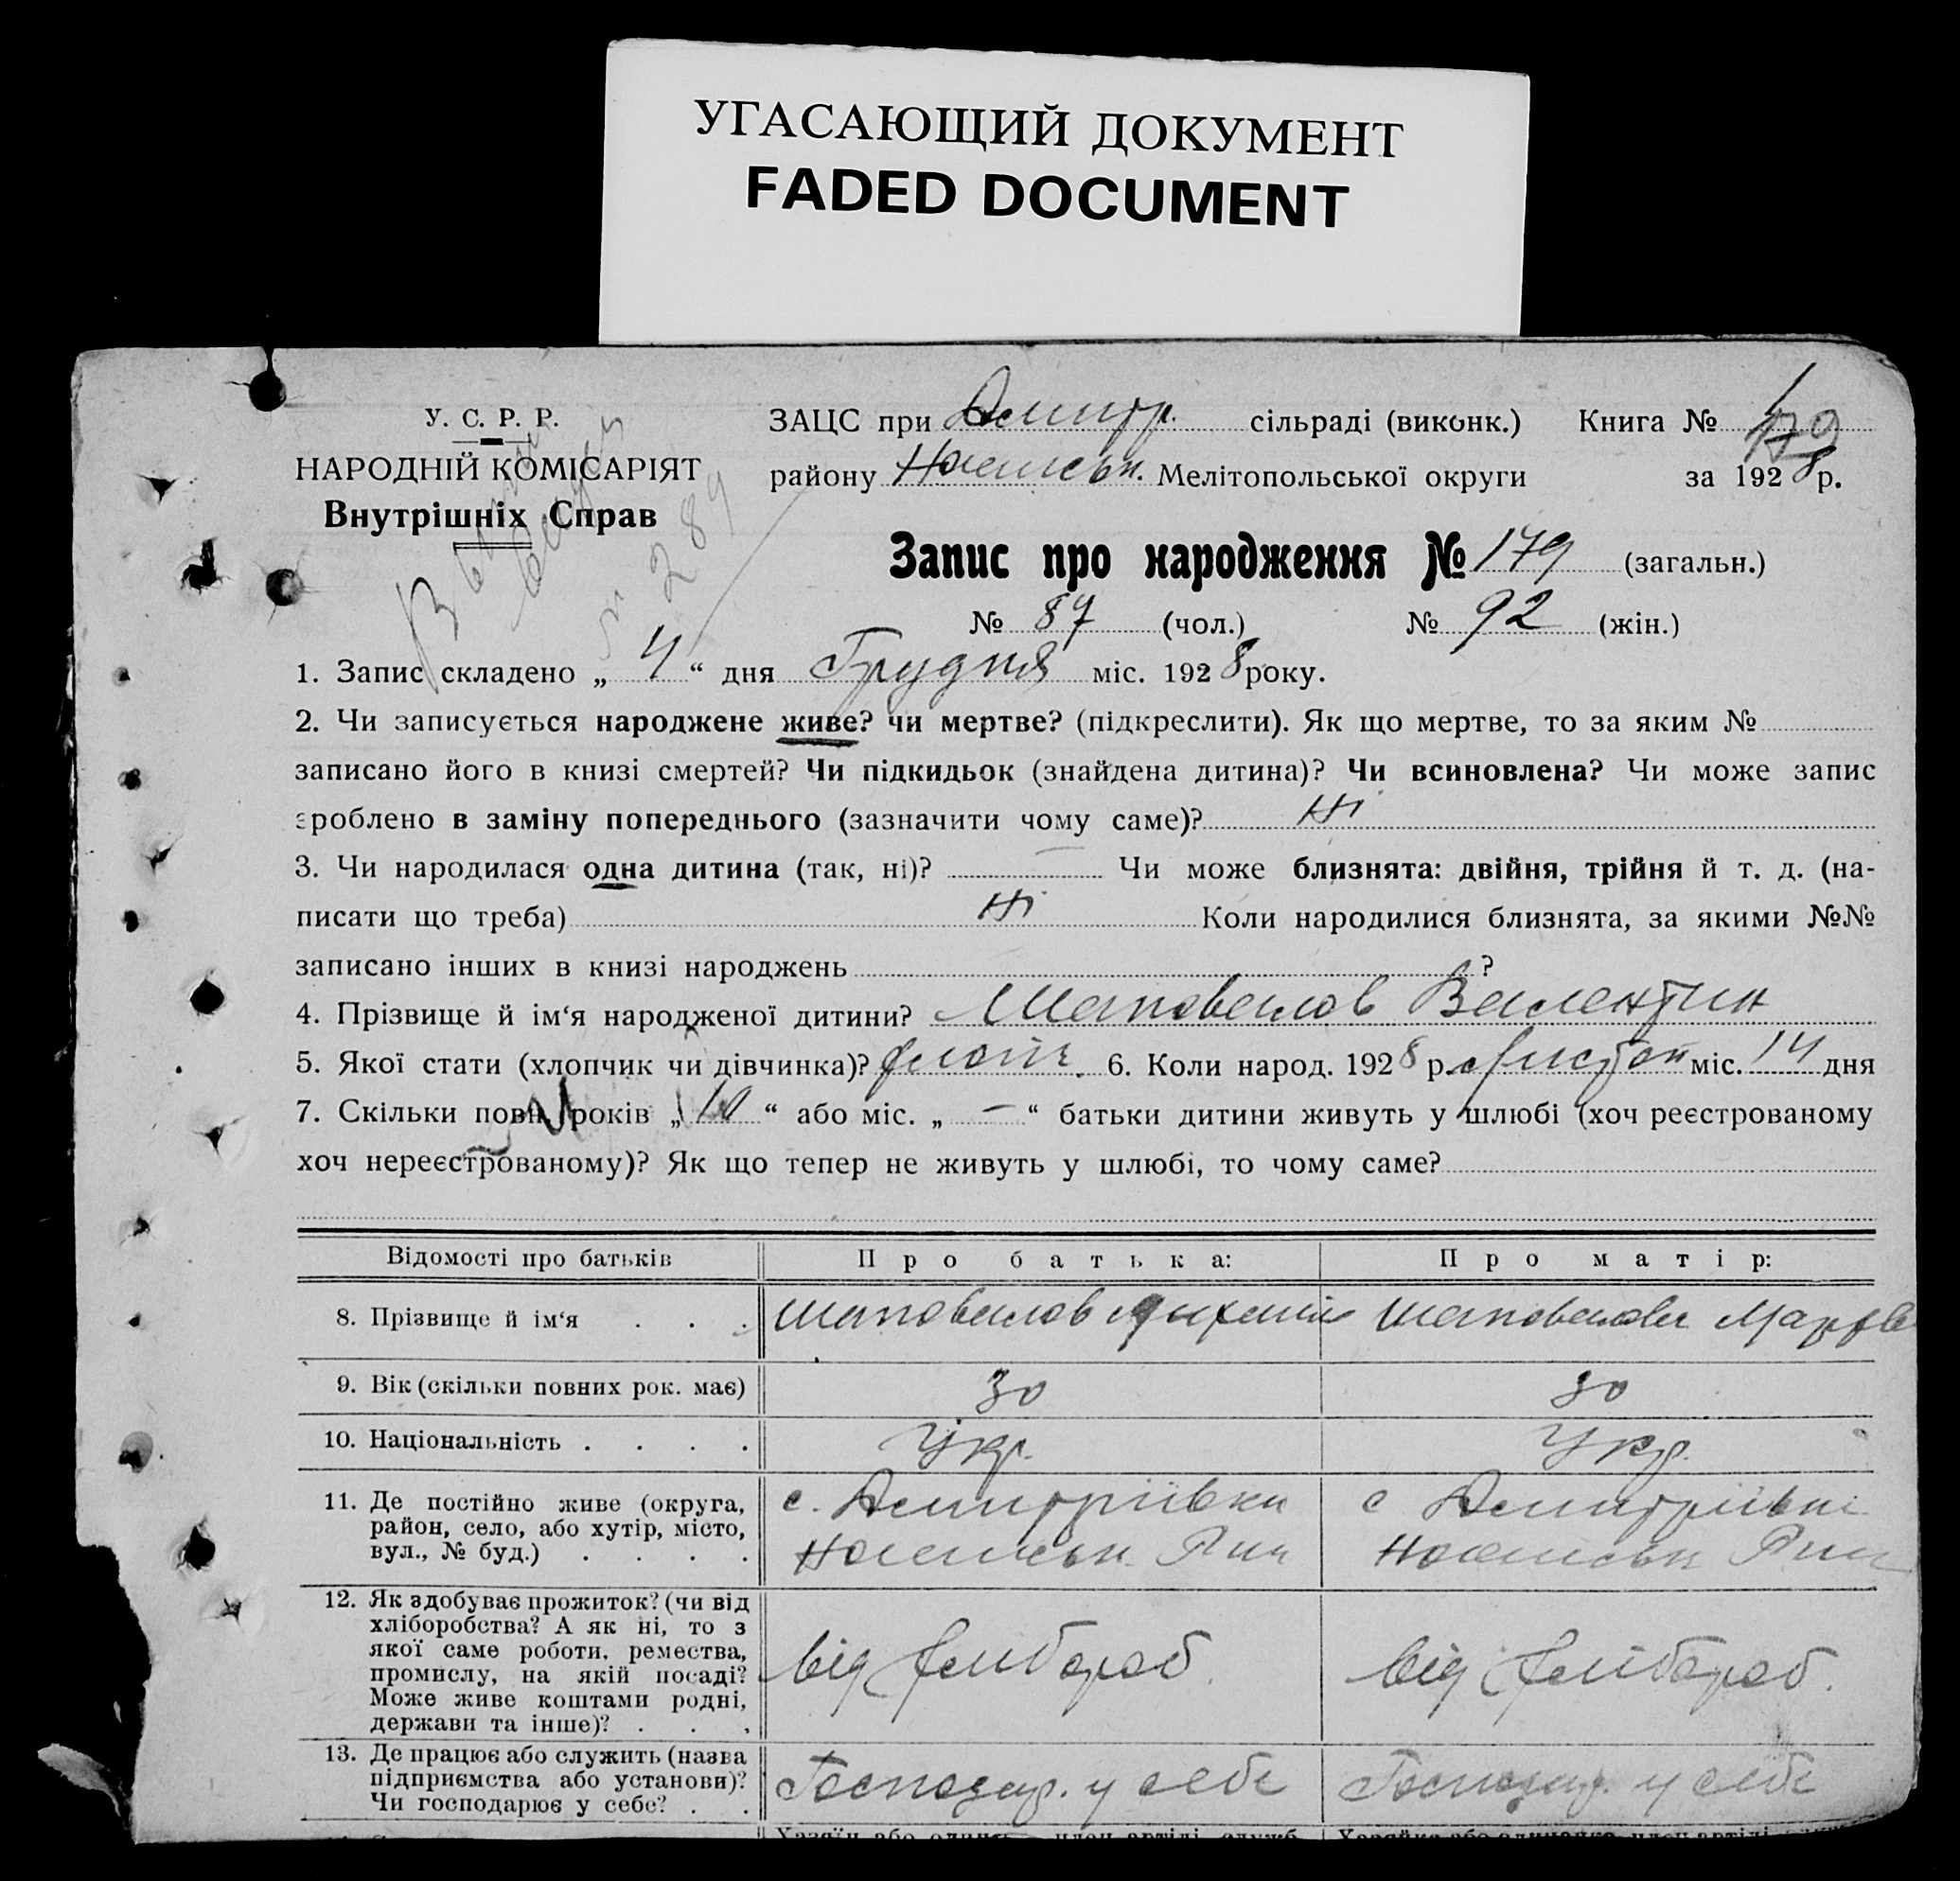 УГАСАЮЩИЙ ДОКУМЕНТ
FADED DOCUMENT
У. С. Р. Р.
НАРОДНІЙ КОМІСАРІЯТ
Внутрішніх Справ
289
ЗАЦС при Дмитр. сільраді (виконк.) Книга №
району Мелітопольської округи за 1928 р.
Запис про народження № 179 (загальн.)
№ 87 (чол.) № 92 (жін.)
1. Запис складено „ 4 “ дня Грудня міс. 1928 року.
2. Чи записується народжене живе? чи мертве? (підкреслити). Як що мертве, то за яким №
записано його в книзі смертей? Чи підкидьок (знайдена дитина)? Чи всиновлена? Чи може запис
зроблено в заміну попереднього (зазначити чому саме)? Ні
3. Чи народилася одна дитина (так, ні)? Чи може близнята: двійня, трійня й т. д. (на-
писати що треба) Ні Коли народилися близнята, за якими №№
записано інших в книзі народжень ?
4. Прізвище й ім‘я народженої дитини? Шаповалов Валентин
5. Якої стати (хлопчик чи дівчинка)? хлопч. 6. Коли народ. 1928 р. Листоп міс. 14 дня
7. Скільки повн. років „ 10 “ або міс. „ — “ батьки дитини живуть у шлюбі (хоч реєстрованому
хоч нереєстрованому)? Як що тепер не живуть у шлюбі, то чому саме?
Відомості про батьків Про батька: Про матір:
8. Прізвище й ім‘я . . . Шаповалов Шаповалова
9. Вік (скільки повних рок. має) 30 30
10. Національність . . . . Укр. Укр.
11. Де постійно живе (округа, с. Дмитріївки с Дмитріївки
район, село, або хутір, місто,
вул., № буд.) . . . .
12. Як здобуває прожиток? (чи від
хліборобства? А як ні, то з
якої саме роботи, ремества,
промислу, на якій посаді? від хлібороб. від хлібороб.
Може живе коштами родні,
держави та інше)? . . .
13. Де працює або служить (назва
підприємства або установи)? Господар. у себе Господар. у себе
Чи господарює у себе? . .